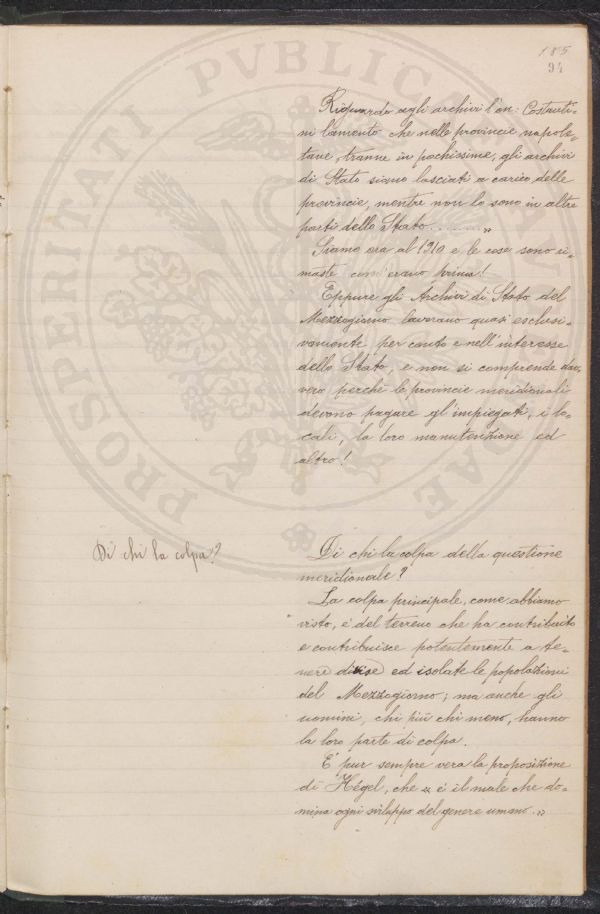 185
94
Riguardo agli archivi l'on: Costanti=
ni lamentò che nelle provincie napole=
tane, tranne in pochissime, gli archivi
di Stato siano lasciati a carico delle
provincie, mentre non lo sono in altre
parti dello Stato ........... „
Siamo ora al 1910 e le cose sono ri=
maste com'erano prima!
Eppure gli Archivi di Stato del
Mezzogiorno lavorano quasi esclusi=
vamente per conto e nell'interesse
dello Stato, e non si comprende dav=
vero perchè le provincie meridionali
devono pagare gl'impiegati, i lo=
cali, la loro manutenzione ed
altro!
Di chi la colpa?
Di chi la colpa della questione
meridionale?
La colpa principale, come abbiamo
visto, è del terreno che ha contribuito
e contribuisce potentemente a te=
nere divise ed isolate le popolazioni
del Mezzogiorno; ma anche gli
uomini, chi più chi meno, hanno
la loro parte di colpa.
E' pur sempre vera la proposizione
di Hégel, che « è il male che do=
mina ogni sviluppo del genere umano „
PROPRIETATI PVBLICAE